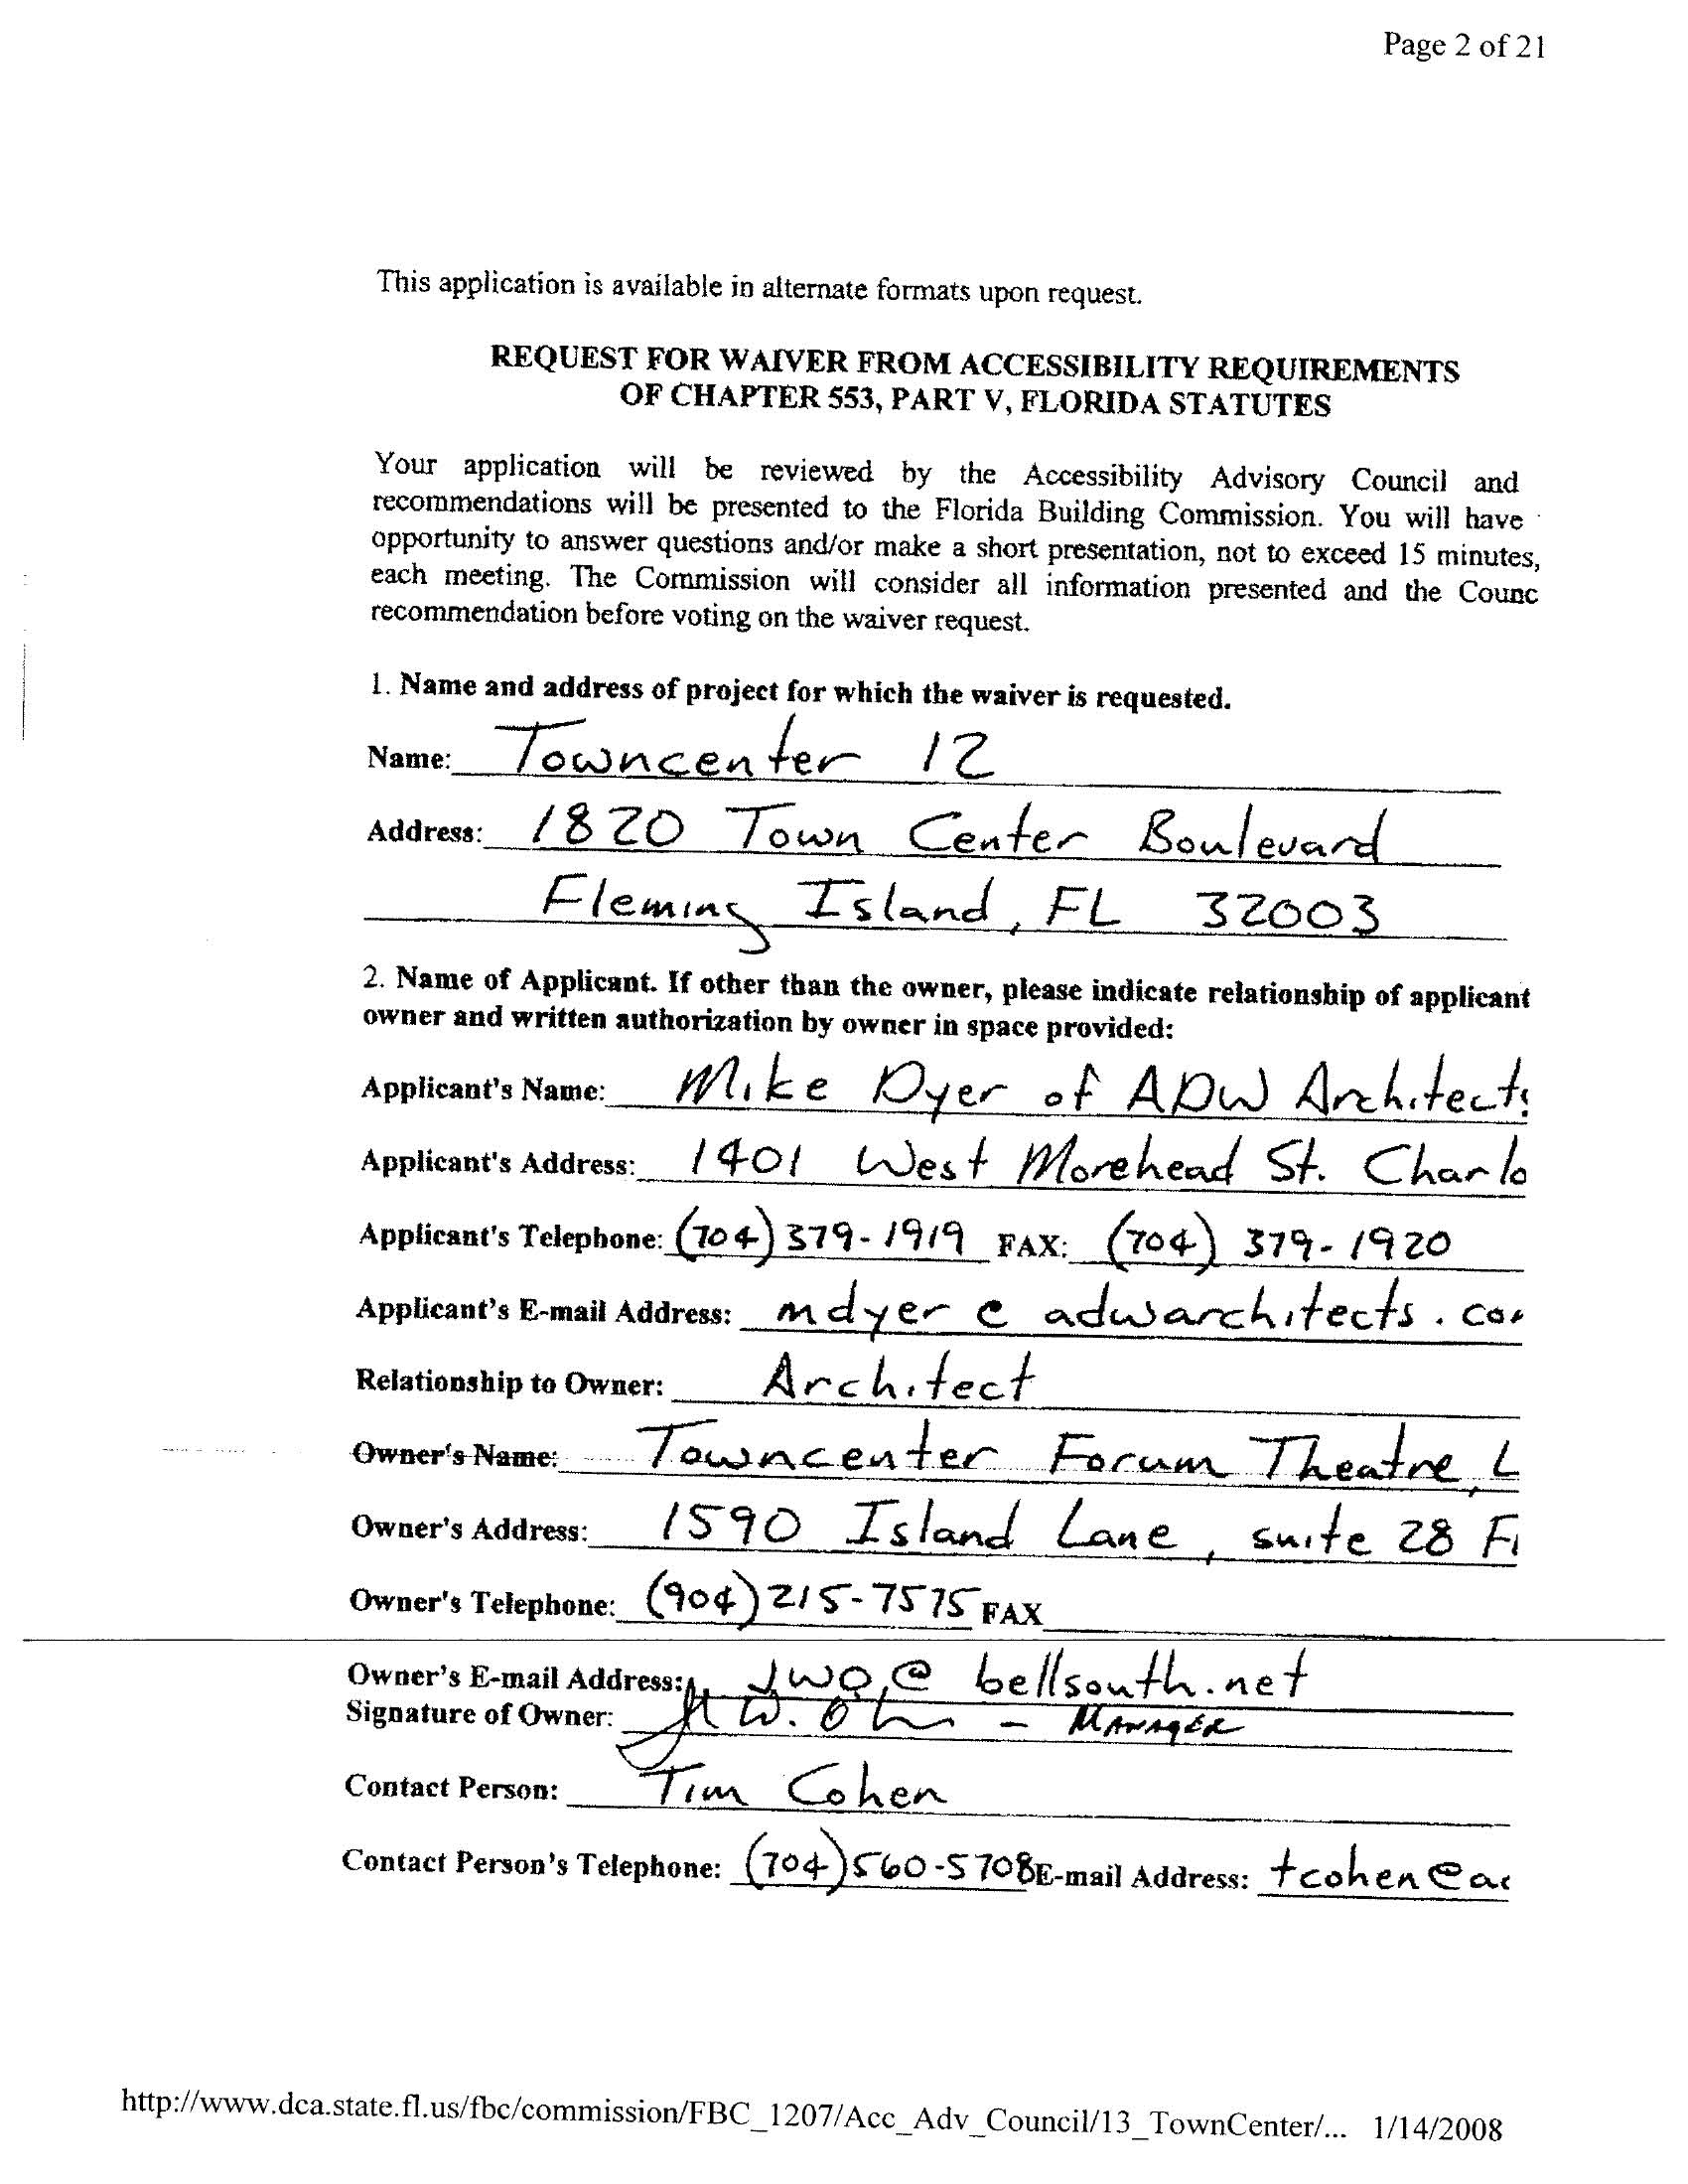 Page 2 of 21
This application is available in alternate formats upon request.
REQUEST FOR WAIVER FROM ACCESSIBILITY REQUIREMENTS
OF CHAPTER 553, PART V, FLORIDA STATUTES
Your application will be reviewed by the Accessibility Advisory Council and
recommendations will be presented to the Florida Building Commission. You will have
opportunity to answer questions and/or make a short presentation, not to exceed 15 minutes,
each meeting. The Commission will consider all information presented and the Counc
recommendation before voting on the waiver request.
1. Name and address of project for which the waiver is requested.
Name: Towncenter 12
Address: 1820 Town Center Boulevard
Fleming Island, FL 32003
2. Name of Applicant. If other than the owner, please indicate relationship of applicant
owner and written authorization by owner in space provided:
Applicant's Name: Mike Dyer of ADW Architects
Applicant's Address: 1401 West Morehead St. Charlo
Applicant's Telephone: (704) 379-1919 FAX: (704) 379-1920
Applicant's E-mail Address: mdyer@adwarchitects.co
Relationship to Owner: Architect
Owner's Name: Towncenter Forum Theatre, L
Owner's Address: 1590 Island Lane, suite 28 F
Owner's Telephone: (904) 215-7575 FAX
Owner's E-mail Address: JWO@bellsouth.net
Signature of Owner: W. - MANAGER
Contact Person: Tim Cohen
Contact Person's Telephone: (704) 560-5708 E-mail Address: tcohen@a
http://www.dca.state.fl.us/fbc/commission/FBC_1207/Acc_Adv_Council/13_TownCenter/... 1/14/2008